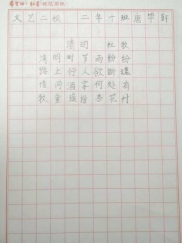 文艺二校 二年十班唐毕轩
清明 杜牧
清明时节雨纷纷
路上行人欲断魂
借问酒家何处有
牧童遥指杏花村